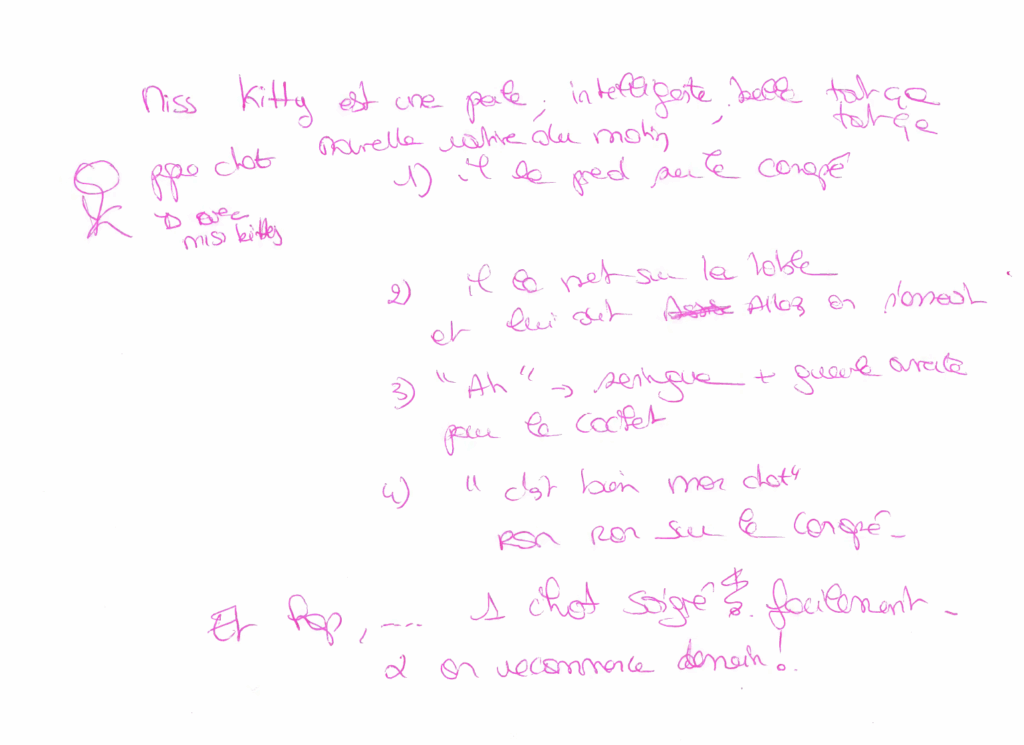 Miss Kitty est une perle, intelligente, belle tatata
tatata
nouvelle routine du matin
papa chat
→ avec
miss kitty
1) il le prend sur le canapé
2) il le met sur la table
et lui dit Allez on s'assoit
3) "Ah" → seringue + gueule ouverte
pour le cachet
4) "c'est bien mon chat"
RON RON sur le canapé -
Et hop, .... 1 chat soigné facilement -
2 on recommence demain !